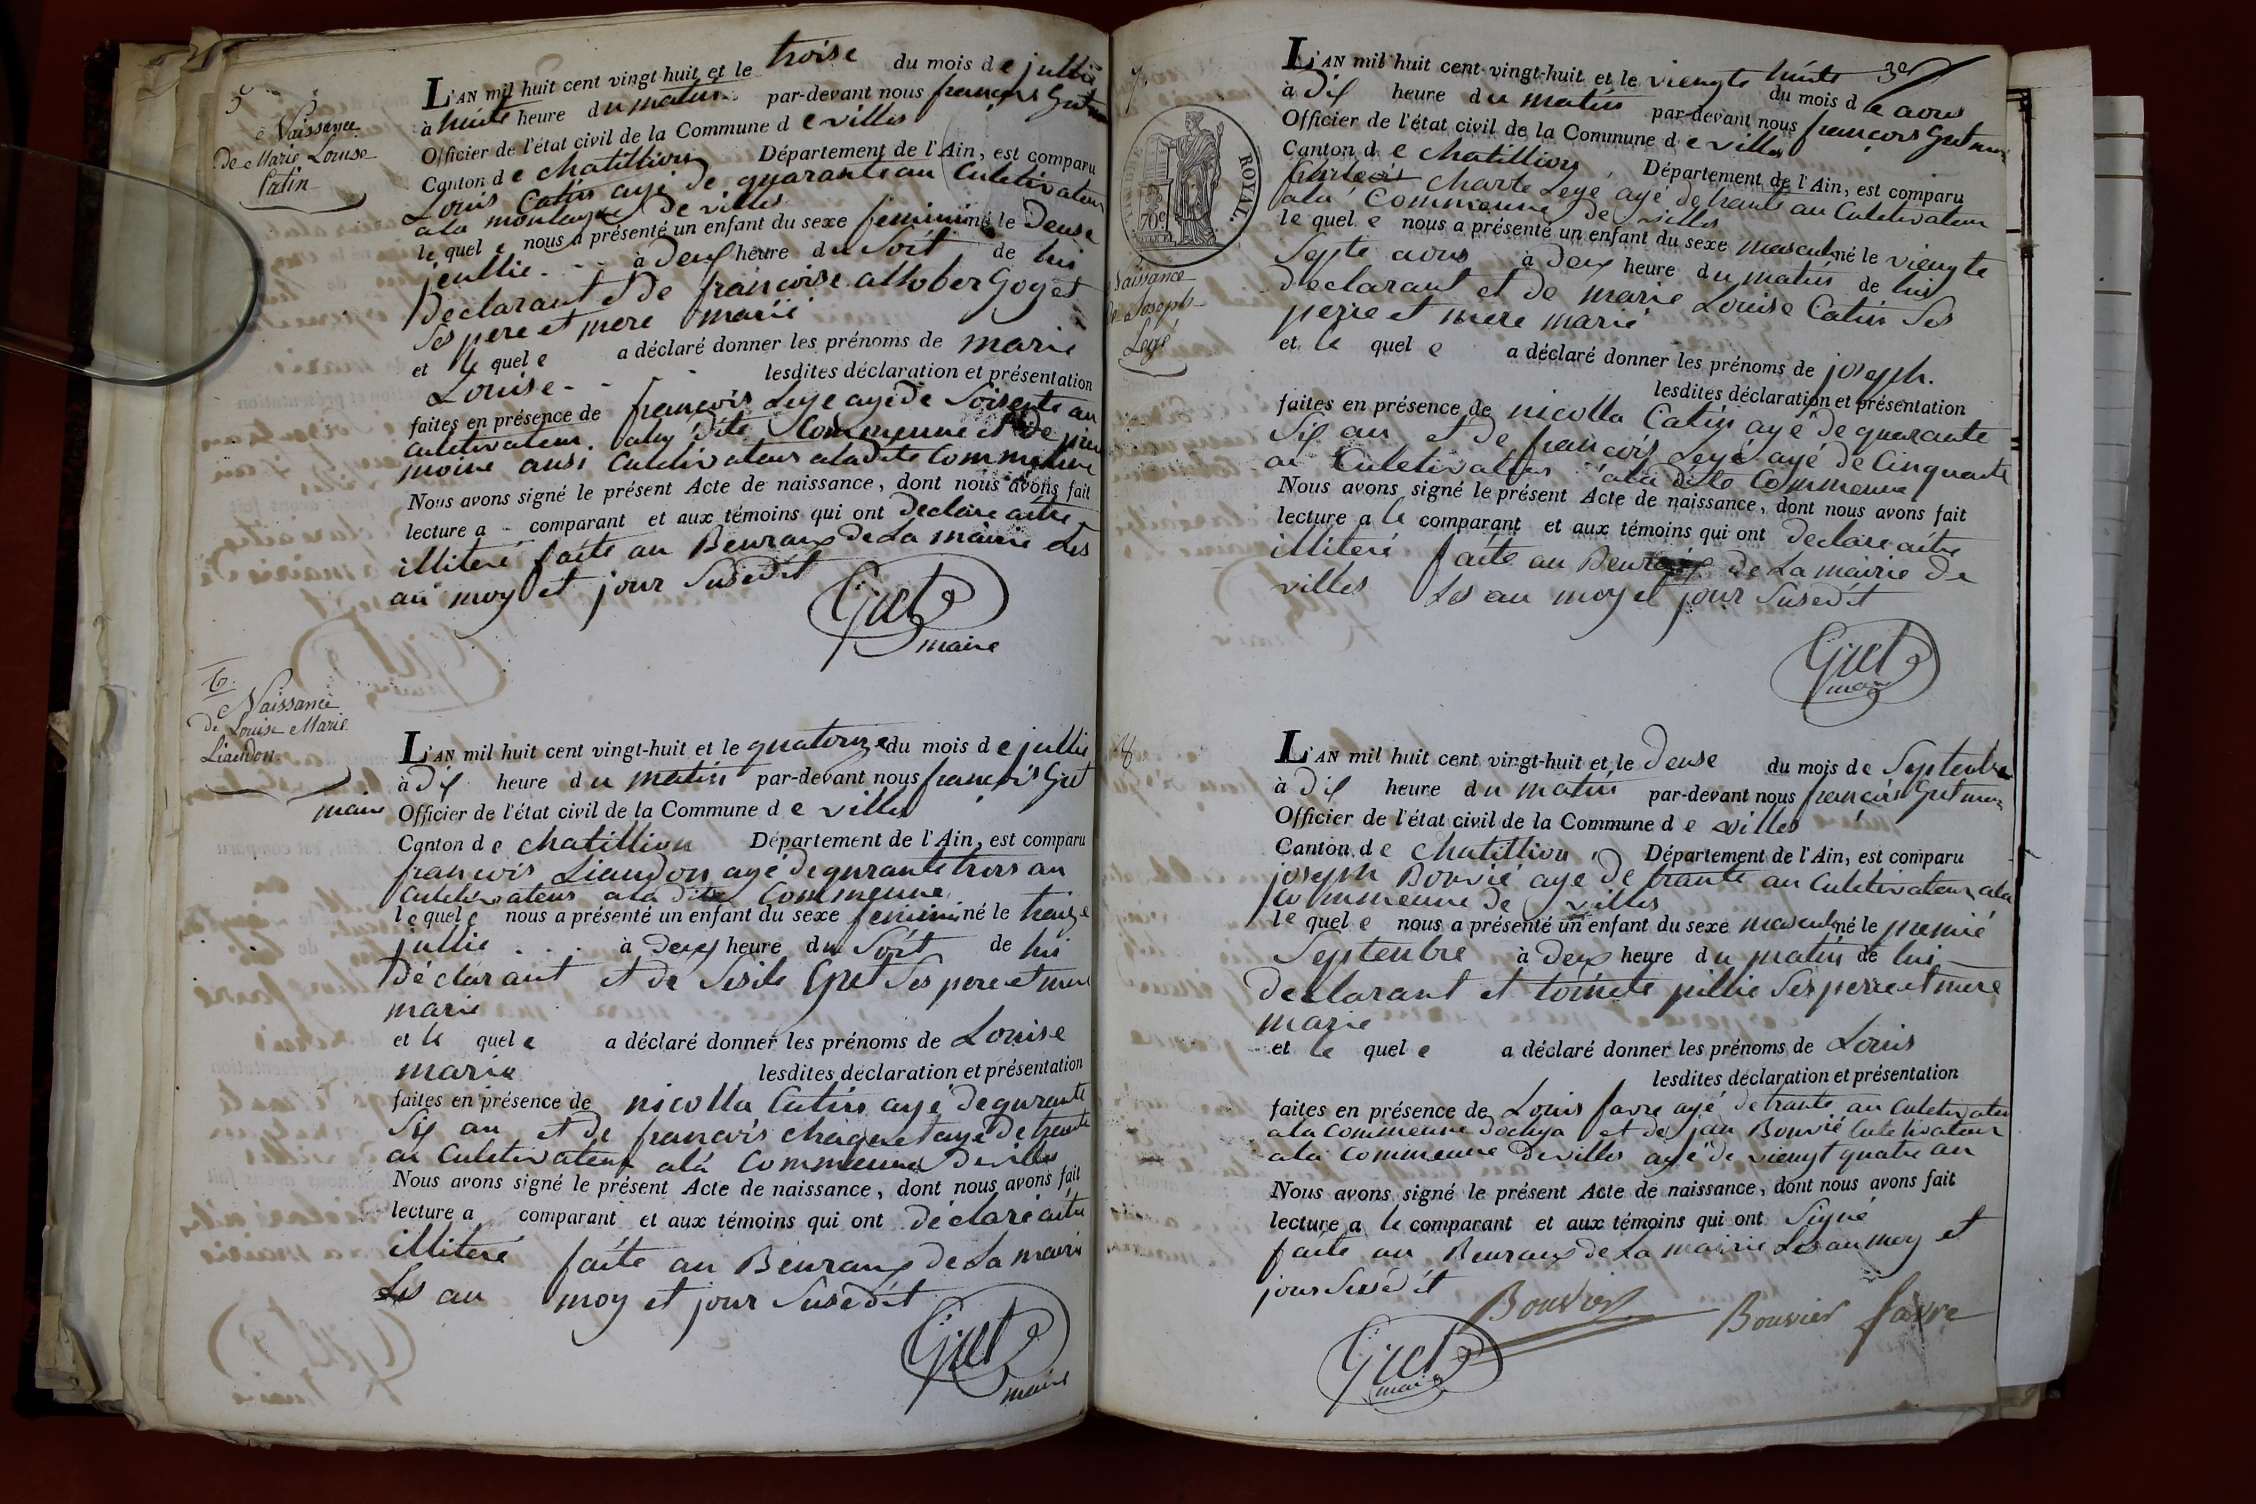 5
Naissance
de Marie Louise
Catin
L'AN mil huit cent vingt-huit et le troise du mois de jullie
à huite heure du matin par-devant nous françois Gret
Officier de l'état civil de la Commune de villes
Canton de chatillion Département de l'Ain, est comparu
Louis Catin ayé de quarante au Culetivateur
a la montagne de villes
le quel e nous a présenté un enfant du sexe feminin né le deuse
jeullie - - - à deux heure du Soit de lui
Declarant et de françoise allober Goget
Ses pere et mere marié
et le quel e a déclaré donner les prénoms de marie
Louise - - - lesdites déclaration et présentation
faites en présence de françois Leye ayé de Soisente an
Culetivateur alay dite Commeune et de
moine ausi Culetivateur a la dite Commeune
Nous avons signé le présent Acte de naissance, dont nous avons fait
lecture a - comparant et aux témoins qui ont declare aitre
illiteré faite au Beuraux de La mairie Les
an moy et jour Susedit
Gret
maire
6
Naissance
de Louise Marie
Liaudon
L'AN mil huit cent vingt-huit et le quatorze du mois de jullie
à dix heure du matin par-devant nous françois Gret
maire Officier de l'état civil de la Commune de villes
Canton de chatillion Département de l'Ain, est comparu
françois Liaudon ayé de qurante trois an
Culetivateur a la dite Commeune
le quel e nous a présenté un enfant du sexe feminin né le traize
jullie - - - à deux heure du Soit de lui
Déclarant et de Sisile Gret Ses pere et mere
marie
et le quel e a déclaré donner les prénoms de Louise
marie lesdites déclaration et présentation
faites en présence de nicolla Catin ayé de qurante
Six an et de françois chaquet ayé de trante
an Culetivateur a la Commeune de villes
Nous avons signé le présent Acte de naissance, dont nous avons fait
lecture a comparant et aux témoins qui ont déclaré aitre
illiteré faite au Beuraux de La mairi
Les au moy et jour Susedit
Gret
maire
7
ROYAL.
70c
Naissance
de Joseph
Legé
3e
L'AN mil huit cent vingt-huit et le viengte huite du mois de aous
à dix heure du matin par-devant nous françois Gret maire
Officier de l'état civil de la Commune de villes
Canton de chatillion Département de l'Ain, est comparu
Charle Legé ayé de trante an Culetivateur
a la Commeune de villes
le quel e nous a présenté un enfant du sexe masculin né le viengte
Septe aous à deux heure du matin de lui
declarant et de marie Louise Catin Ses
perre et mere marié
et le quel e a déclaré donner les prénoms de joseph.
lesdites déclaration et présentation
faites en présence de nicolla Catin ayé de quarante
Six an et de françois Leyé ayé de Cinquante
an Culetivateur a la dite Commeune
Nous avons signé le présent Acte de naissance, dont nous avons fait
lecture a le comparant et aux témoins qui ont declare aitre
illiteré faite au de La mairie de
villes Les au moy et jour Susedit
Gret
maire
8
L'AN mil huit cent vingt-huit et le deuse du mois de Septenbre
à dix heure du matin par-devant nous françois Gret maire
Officier de l'état civil de la Commune de villes
Canton de chatillion Département de l'Ain, est comparu
joseph Bouvié ayé de trante an Culetivateur a la
Commeune de villes
le quel e nous a présenté un enfant du sexe masculin né le premié
Septenbre à deux heure du matin de lui
declarant et toinete pillie Ses perre et mere
marie
et le quel e a déclaré donner les prénoms de Louis
lesdites déclaration et présentation
faites en présence de Louis favre ayé de trante an Culetivateur
a la Commeune dochya et de jan Bouvié Culetivateur
a la Commeune de villes ayé de viengt quatre an
Nous avons signé le présent Acte de naissance, dont nous avons fait
lecture a le comparant et aux témoins qui ont Signé
faite au Beuraux de La mairie Les au moy et
jour Susédit
Bouvier Bouvier favre
Gret
maire